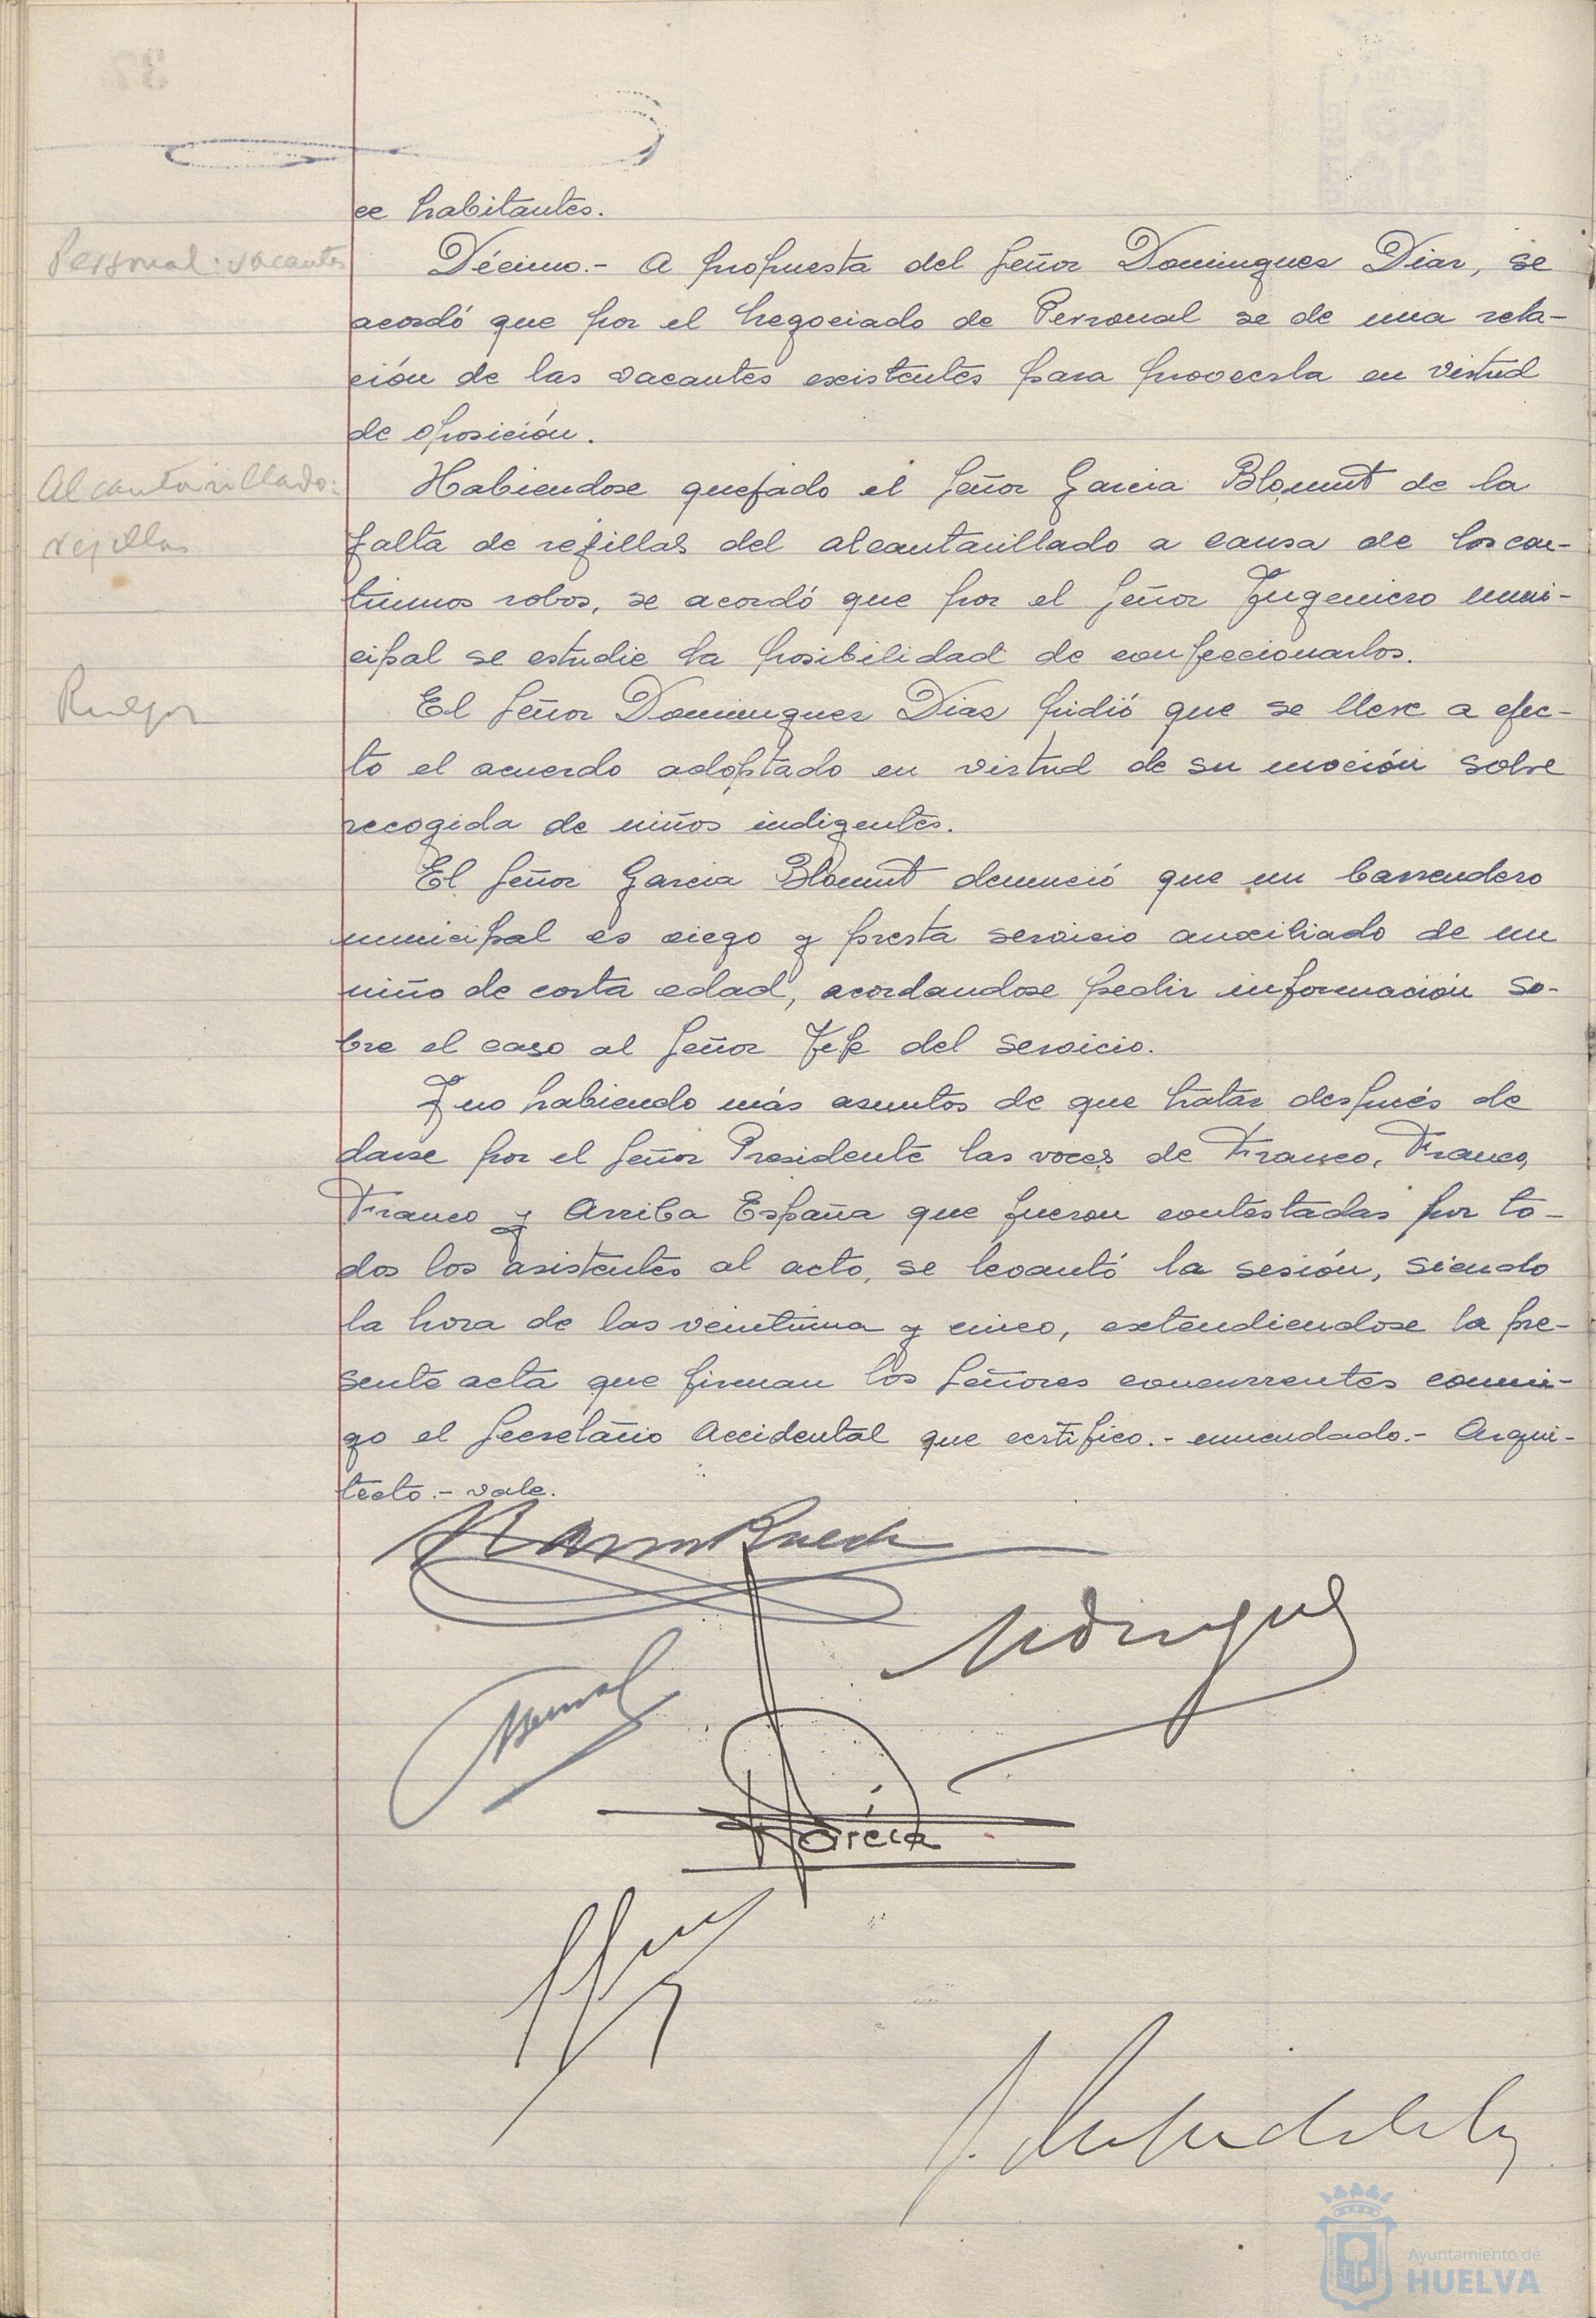 ce habitantes.
Personal: vacantes
Décimo.- A propuesta del Señor Dominguez Diaz, se
acordó que por el Negociado de Personal se de una rela-
ción de las vacantes existentes para proveerla en virtud
de oposición.
Alcantarillado:
rejillas
Habiendose quejado el Señor Garcia Blomut de la
falta de rejillas del alcantarillado a causa de los con-
tinuos robos, se acordó que por el Señor Ingeniero muni-
cipal se estudie la posibilidad de confeccionarlos.
Ruegos
El Señor Dominguez Diaz pidió que se lleve a efec-
to el acuerdo adoptado en virtud de su moción sobre
recogida de niños indigentes.
El Señor Garcia Blomut denunció que un barrendero
municipal es ciego y presta servicio auxiliado de un
niño de corta edad, acordandose pedir información so-
bre el caso al Señor Jefe del servicio.
Y no habiendo más asuntos de que tratar después de
darse por el Señor Presidente las voces de Franco, Franco,
Franco y Arriba España que fueron contestadas por to-
dos los asistentes al acto, se levantó la sesión, siendo
la hora de las veintiuna y cinco, extendiendose la pre-
sente acta que firman los Señores concurrentes conmi-
go el Secretario Accidental que certifico.- enmendado.- Arqui-
tecto.- vale.
Garcia
Ayuntamiento de
HUELVA